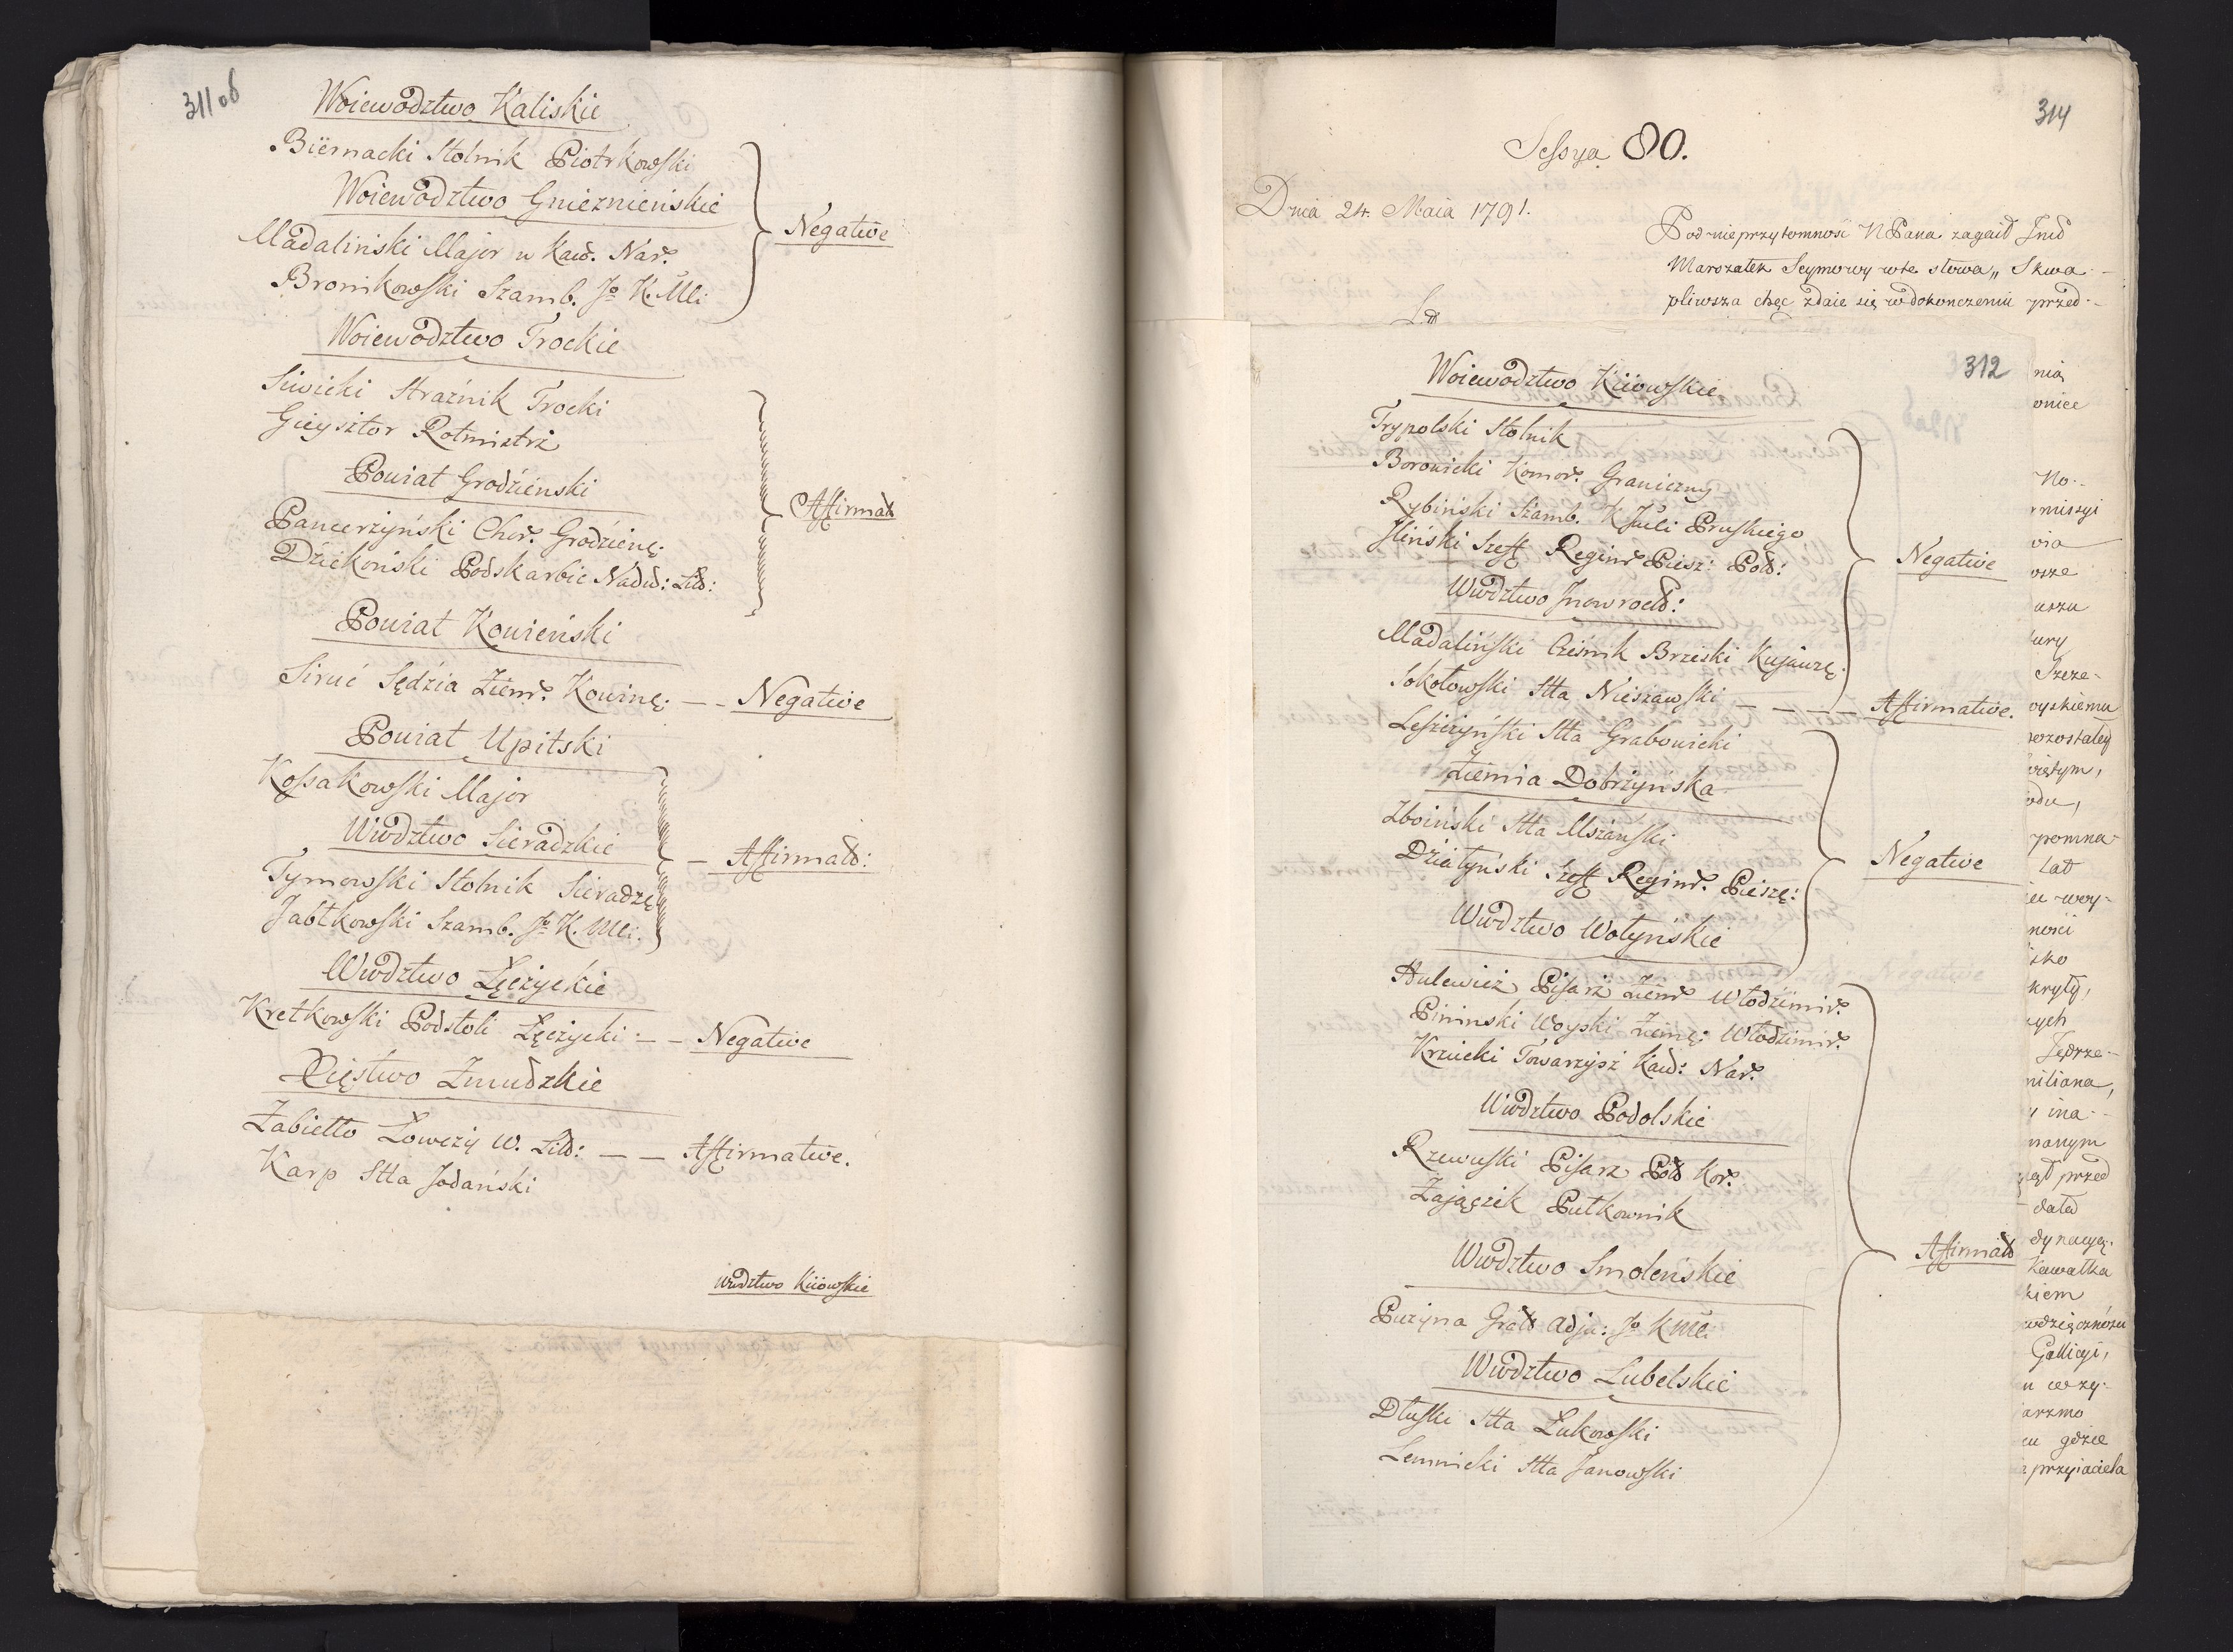 311 ob
Woiewodztwo Kaliskie
Biernacki Stolnik Piotrkowski
Woiewodztwo Gnieznieńskie
Negative
Madaliński Major w Kaw. Nar.
Bronikowski Szamb. Jo K. Mci
Woiewodztwo Trockie
Siwicki Strażnik Trocki
Gieysztor Rotmistrz
Powiat Grodzieński
Affirmat
Pancerzyński Chor. Grodzienę:
Dziekoński Podskarbie Nadw: Litt:
Powiat Kowieński
Siruć Sędzia Ziem. Kowinę: — — Negative
Powiat Upitski
Kossakowski Major
Wwdztwo Sieradzkie
— Affirmatt:
Tymowski Stolnik Sieradzę
Jabłkowski Szamb. Jo K. Mci.
Wwdztwo Łęczyckie
Kretkowski Podstoli Łęczycki — — Negative
Xięstwo Zmudzkie
Zabiełło Łowczy W. Litt: — — Affirmative.
Karp Stta Jodański
Wwdztwo Kiiowskie
314
Sessya 80.
Dnia 24. Maia 1791.
Pod nieprzytomność NPana zagaił Jmć
Marszałek Seymowy w te słowa „ Skwa-
pliwsza chęć zdaie się w dokonczeniu przed-
312
Woiewodztwo Kiiowskie
Trypolski Stolnik
Borowicki Komor. Graniczny
Rybiński Szamb. K Jmci Pruskiego
Iliński Szeff Regim Piesz: Pols:
Negative
Wwdztwo Inowrocł:
Madaliński Cześnik Brzeski Kujawę:
Sokołowski Stta Nieszawski — — — — Affirmative.
Leszczyński Stta Grabowiecki
Ziemia Dobrzyńska
Zboiński Stta Mszański
Działyński Szeff Regim. Pieszę:
Negative
Wwdztwo Wołyńskie
Hulewicz Pisarz Ziem Włodzimir.
Pininski Woyski Ziemę: Włodzimir.
Krzucki Towarzysz Kaw: Nar.
Wwdztwo Podolskie
Rzewuski Pisarz Pol Kor.
Zajączek Pułkownik
Wwdztwo Smoleńskie
Affirmatt
Puzyna Grał Adju: Jo K Mci.
Wwdztwo Lubelskie
Dłuski Stta Łukowski
Lemnicki Stta Janowski
nia
onice
No-
missyi
wia
osze
uszu
ury
Szcze-
wyskiemu
pozostałey
świętym,
odu,
pomna-
lat
wy-
ności
sko
kryty,
ych
Jędrze-
miliana,
y ina-
nanym
przed
datt
dynacyą.
Kawałka
kiem
wdzięcznosu
Gallicyi,
u wzy-
arzmo
eu gdzie
przyiaciela